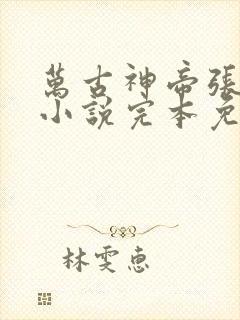 萬古神帝張
小說完本免
林雯惠